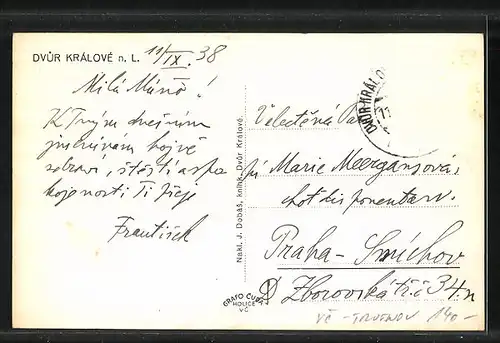 DVŮR KRÁLOVÉ n. L. 11/IX. 38
Milá Máňo!
K Tvým dnešním
jmeninám hojně
zdraví, štěstí a spo
kojenosti Ti přeje
František
Nakl. J. Dobáš, knihk. Dvůr Králové.
GRAFO ČUDA
HOLICE
VČ
DVŮR KRÁLO
Velectěná
Marie Meergansová
Praha - Smíchov
Zborovská tř. č 34.n
VČ - TRUTNOV 140-